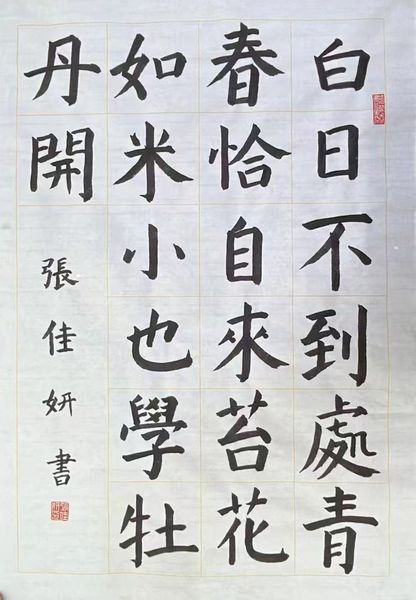 白日不到處青
春恰自來苔花
如米小也學牡
丹開
張佳妍書